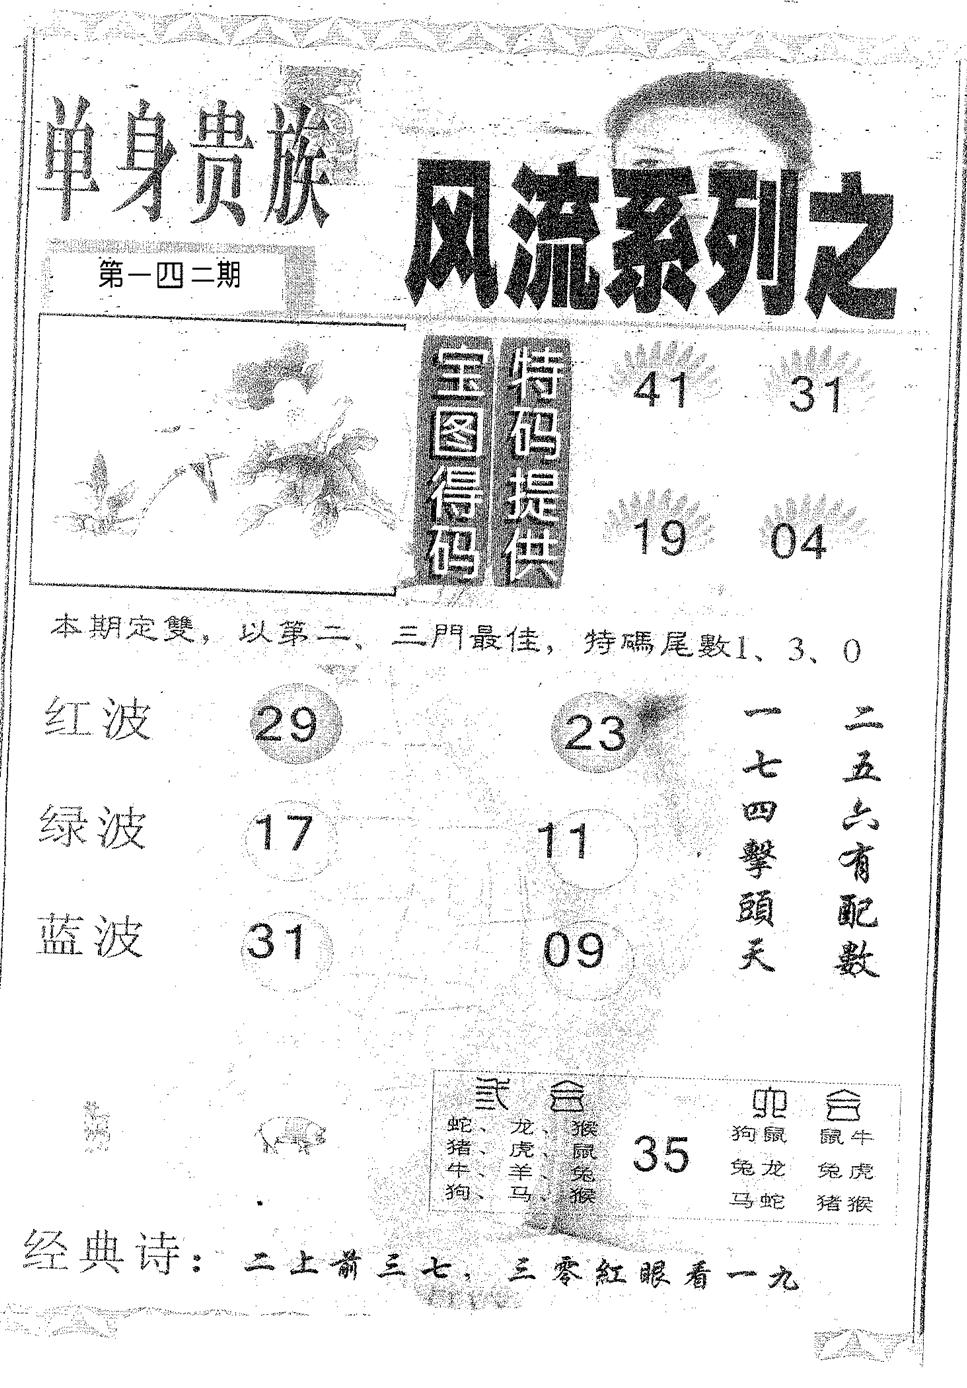 单身贵族
风流系列之
第一四二期
宝图得码
特码提供
41 31
19 04
本期定雙，以第二、三門最佳，特碼尾數1、3、0
红波 29 23
绿波 17 11
蓝波 31 09
一七四擊頭天
二五六有配數
合
蛇、龙、猴
猪、虎、鼠
牛、羊、兔
狗、马、猴
35
合
狗鼠 鼠牛
兔龙 兔虎
马蛇 猪猴
经典诗：二上前三七，三零紅眼看一九